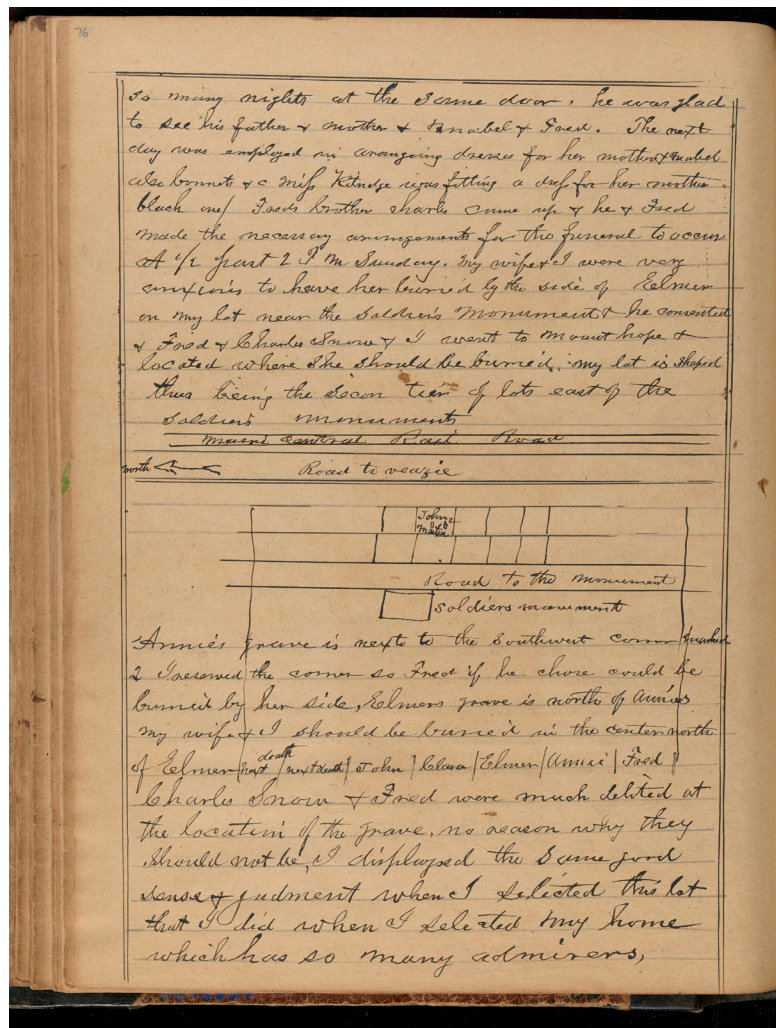 76
so many nights at the same door. he was glad
to see his father & mother & Annabel & Fred. The next
day was employed in arangeing dresses for her mother & mabel
also bonnets & c miss Kitredge was fitting a dress for her mother
black one/ Freds brother sharls come up & he & Fred
made the necessary arangements for the funeral to occur
At 1/2 past 2 P M Sunday. my wife & I were very
anxious to have her burried by the side of Eelmer
on my lot near the Soldiers Monument & he consented
& Fred & Charles Snow & I went to Mount hope &
located where she should be burried, my lot is shaped
thus being the secon tier of lots east of the
Soldiers monuments
Maine central Rail Road
north
Road to veazie
John
Martin
Road to the monument
soldiers monument
Annies grave is next to the Southwest corner marked
2 I reserved the corner so Fred if he chose could be
burried by her side, Elmers grave is north of Annies
my wife & I should be buried in the center north
of Eelmer next death / next death / John / Clara / Elmer / Annie / Fred /
Charles Snow & Fred were much delited at
the location of the grave, no reason why they
should not be, I displayed the same good
sense & judment when I selected this lot
that I did when I selected my home
which has so many admirers,